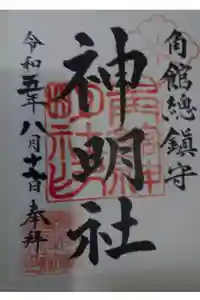 角館總鎮守
神明社
令和五年八月十六日奉拜